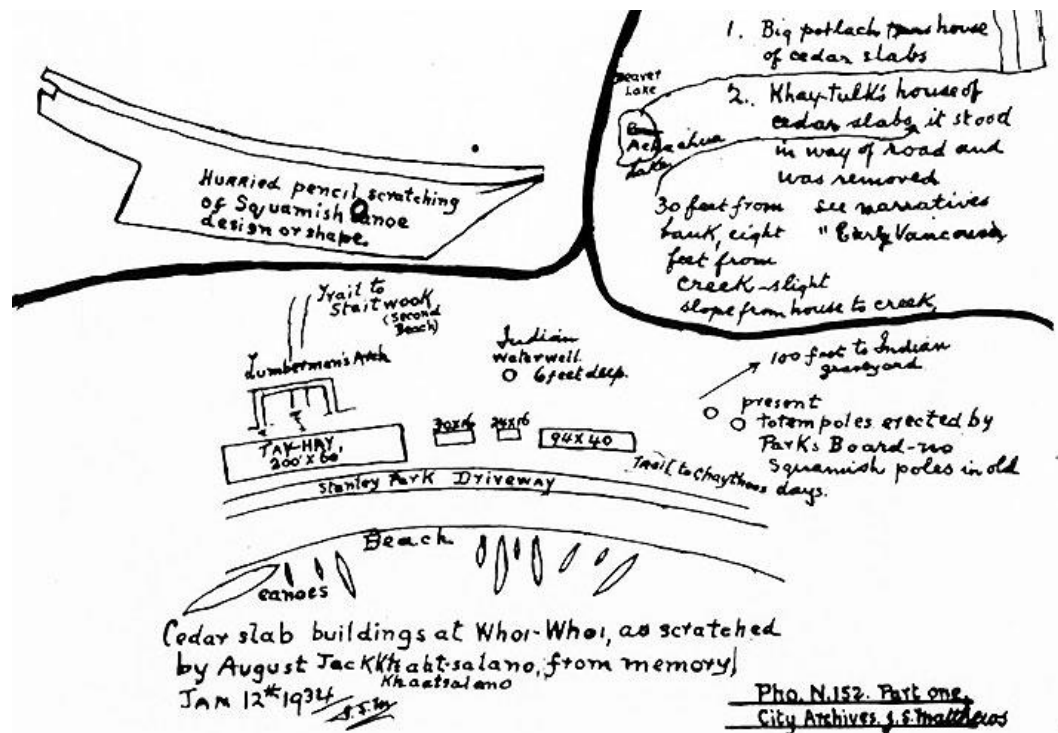 Hurried pencil scratching
of Squamish canoe
design or shape.
1. Big potlach house
of cedar slabs
Beaver
Lake
2. Khay-tulk's house of
cedar slabs, it stood
in way of road and
was removed
see narratives
"Early Vancouver
30 feet from
bank, eight
feet from
creek-slight
slope from house to creek,
Trail to
Staitwook
(Second
Beach)
Lumbermen's Arch
Indian
waterwell
6 feet deep.
100 feet to Indian
graveyard
present
totem poles erected by
Parks Board-no
Squamish poles in old
days.
TAY-HAY,
200' X 60'
30X16
24X16
94X40
Trail to Chaythoos
Stanley Park Driveway
Beach
canoes
Cedar slab buildings at Whoi-Whoi, as scratched
by August Jack Khaht-salano, from memory,
Khaatsalano
JAN 12th 1934
J.S.M
Pho. N.152. Part one.
City Archives. J.S.Matthews